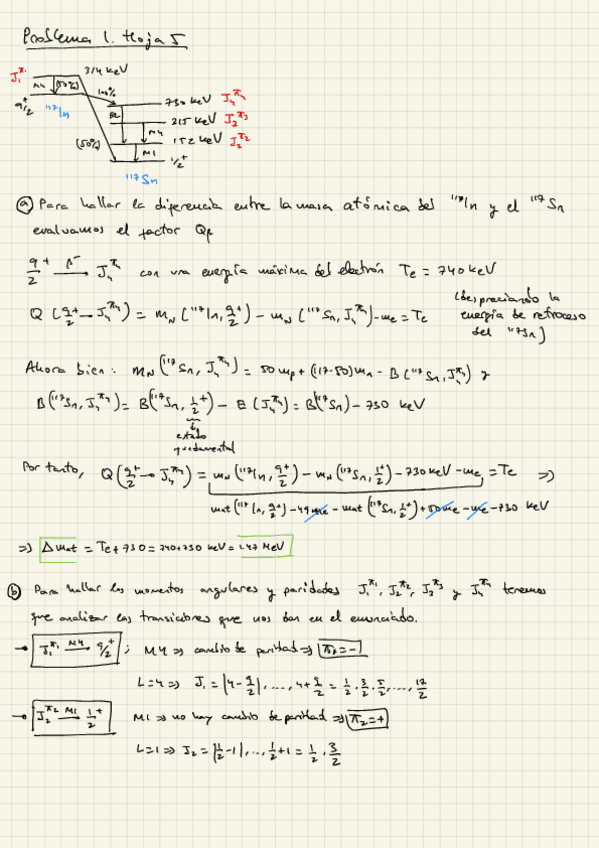 Problema 1. Hoja 5
J₁^π₁
314 keV
M4 (50%)
100%
9/2⁺
¹¹⁷In
730 keV J₄^π₄
E2
315 keV J₃^π₃
M4
(50%)
152 keV J₂^π₂
M1
1/2⁺
¹¹⁷Sn
ⓐ Para hallar la diferencia entre la masa atómica del ¹¹⁷In y el ¹¹⁷Sn
evaluamos el factor Qβ
9/2⁺ —β⁻→ J₄^π₄ con una energía máxima del electrón Te = 740 keV
Q (9/2⁺ → J₄^π₄) = m_N (¹¹⁷In, 9/2⁺) − m_N (¹¹⁷Sn, J₄^π₄) − me = Te
(despreciando la
energía de retroceso
del ¹¹⁷Sn)
Ahora bien: m_N (¹¹⁷Sn, J₄^π₄) = 50 mp + (117−50) mn − B (¹¹⁷Sn, J₄^π₄) y
B (¹¹⁷Sn, J₄^π₄) = B (¹¹⁷Sn, 1/2⁺) − E (J₄^π₄) = B (¹¹⁷Sn) − 730 keV
estado
fundamental
Por tanto, Q (9/2⁺ → J₄^π₄) = m_N (¹¹⁷In, 9/2⁺) − m_N (¹¹⁷Sn, 1/2⁺) − 730 keV − me = Te ⇒
mat (¹¹⁷In, 9/2⁺) − 49me − mat (¹¹⁷Sn, 1/2⁺) + 50me − me − 730 keV
⇒ Δmat = Te + 730 = 740 + 730 keV = 1.47 MeV
ⓑ Para hallar los momentos angulares y paridades J₁^π₁, J₂^π₂, J₃^π₃ y J₄^π₄ tenemos
que analizar las transiciones que nos dan en el enunciado.
→ J₁^π₁ —M4→ 9/2⁺ ; M4 ⇒ cambio de paridad ⇒ π₁ = −
L=4 ⇒ J₁ = |4 − 9/2|, ..., 4 + 9/2 = 1/2, 3/2, 5/2, ..., 17/2
→ J₂^π₂ —M1→ 1/2⁺ M1 ⇒ no hay cambio de paridad ⇒ π₂ = +
L=1 ⇒ J₂ = |1/2 − 1|, ..., 1/2 + 1 = 1/2, 3/2